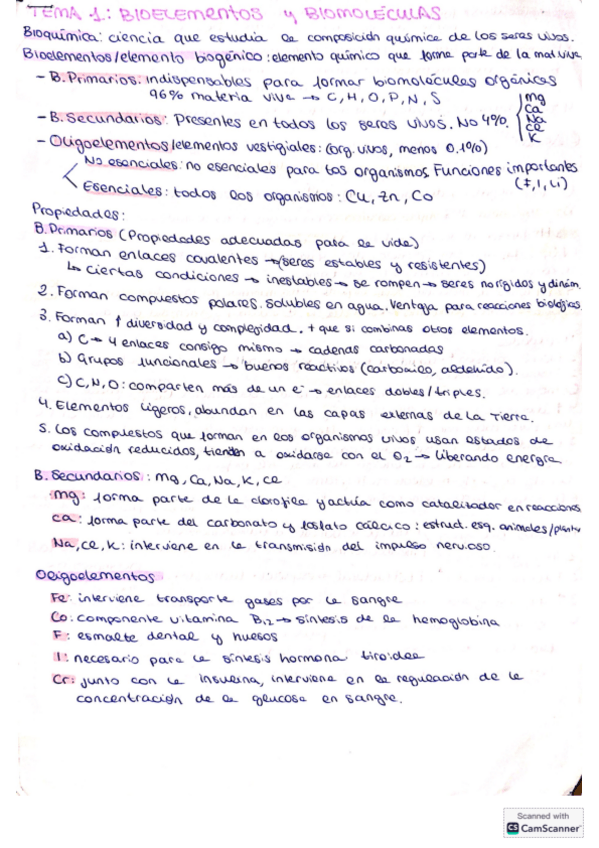 TEMA 1: BIOELEMENTOS y BIOMOLÉCULAS
Bioquímica: ciencia que estudia la composición química de los seres vivos.
Bioelementos/elemento biogénico: elemento químico que forme parte de la mat viva
- B. Primarios: Indispensables para formar biomoléculas orgánicas
96% materia viva → C, H, O, P, N, S
- B. Secundarios: Presentes en todos los seres vivos. No 4%
Mg
Ca
Na
Cl
K
- Oligoelementos/elementos vestigiales: (org. vivos, menos 0.1%)
No esenciales: no esenciales para tos organismos. Funciones importantes
(F, I, Li)
Esenciales: todos los organismos: Cu, Zn, Co
Propiedades:
B. Primarios (Propiedades adecuadas para la vida)
1. Forman enlaces covalentes → (seres estables y resistentes)
↳ ciertas condiciones → inestables → se rompen → seres no rígidos y dinám.
2. Forman compuestos polares. Solubles en agua. Ventaja para reacciones biológicas
3. Forman ↑ diversidad y complegidad. + que si combinas otros elementos.
a) C → 4 enlaces consigo mismo → cadenas carbonadas
b) Grupos funcionales → buenos reactivos (carbonilo, aldehido).
c) C, N, O: comparten más de un e⁻ → enlaces dobles/triples.
4. Elementos ligeros, abundan en las capas externas de la Tierra.
5. Los compuestos que forman en los organismos vivos usan estados de
oxidación reducidos, tienden a oxidarse con el O₂ → liberando energía
B. Secundarios: Mg, Ca, Na, K, Cl
Mg: forma parte de la clorofila y actúa como catalitador en reacciones
Ca: forma parte del carbonato y fosfato cálcico: estruct. esq. animales/plantas
Na, Cl, K: interviene en la transmisión del impulso nervioso.
Oligoelementos
Fe: interviene transporte gases por la sangre
Co: componente vitamina B₁₂ → síntesis de la hemoglobina
F: esmalte dental y huesos
I: necesario para la síntesis hormona tiroidea
Cr: junto con la insulina, interviene en la regulación de la
concentración de la glucosa en sangre.
Scanned with
CS CamScanner